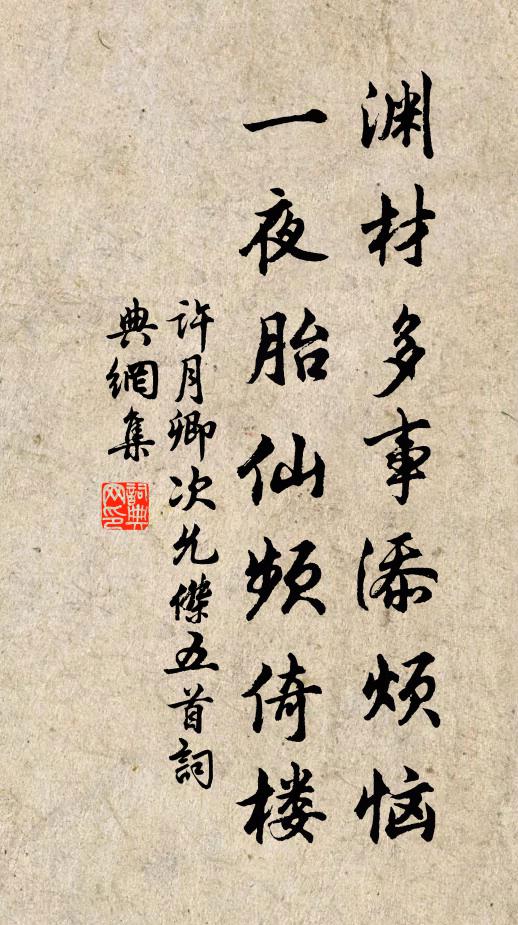 渊材多事添烦恼
一夜胎仙频倚楼
许月卿次允傑五首詞
典網集
詞典网印